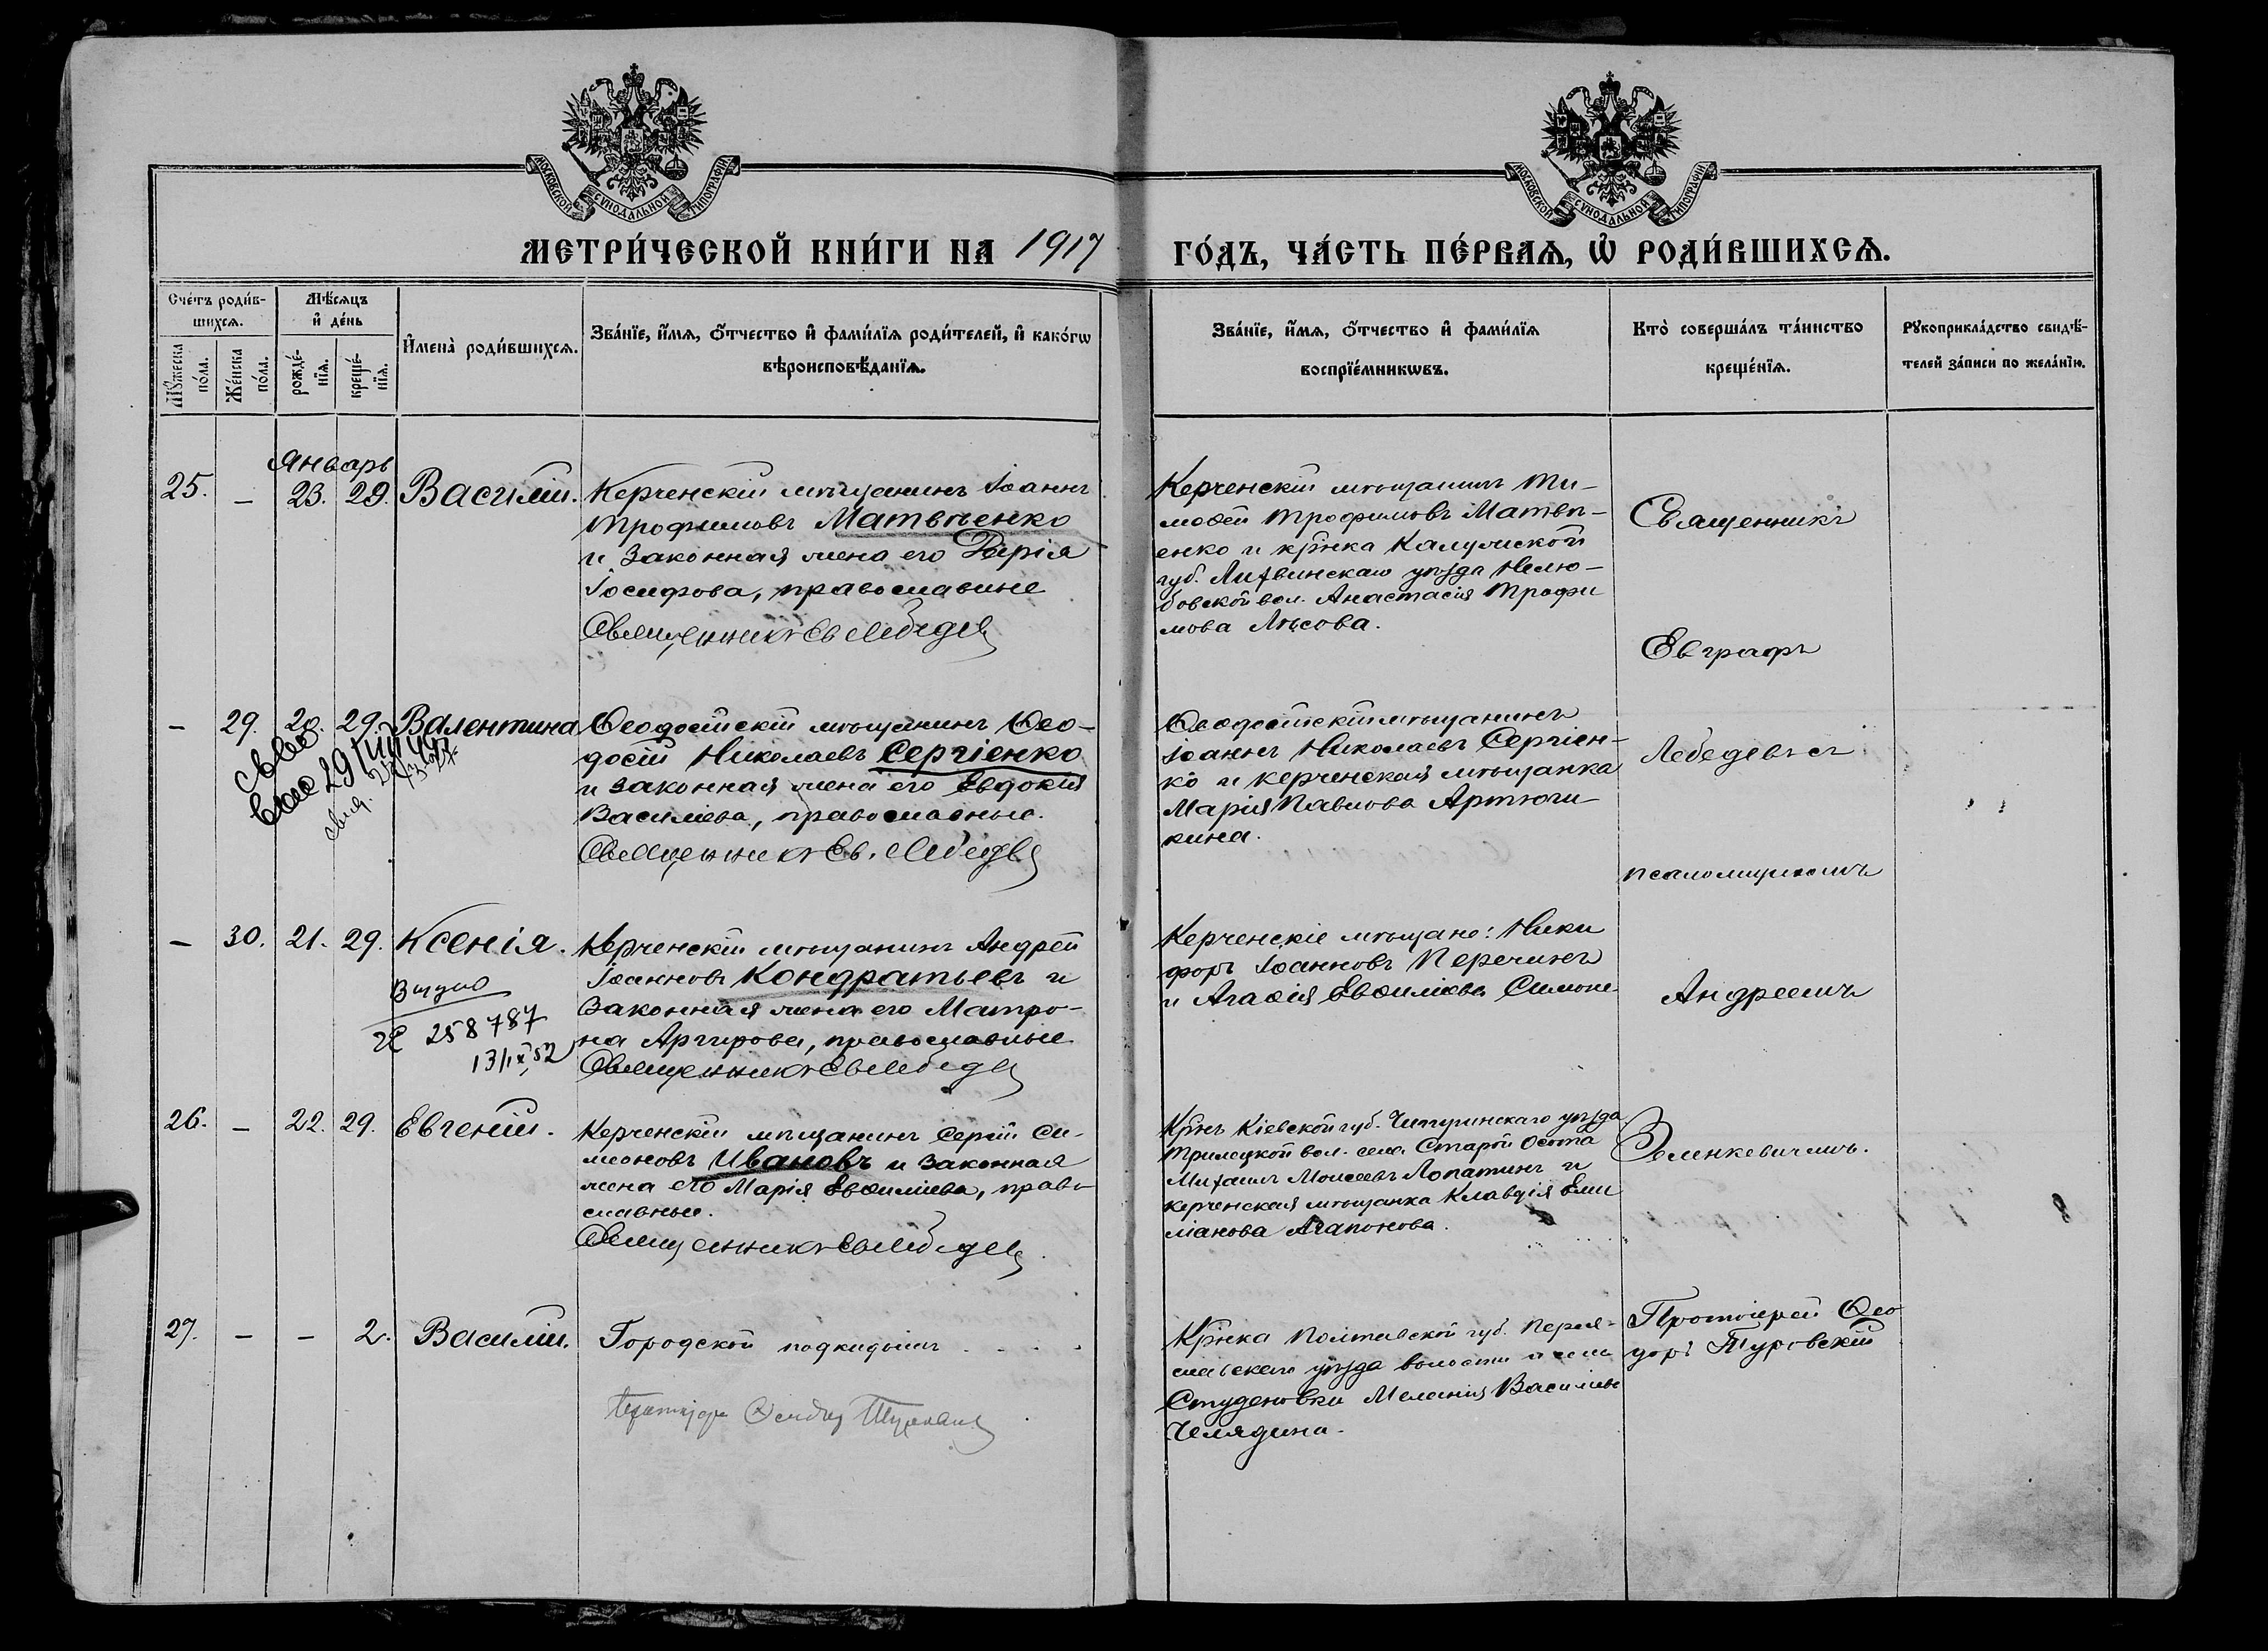 МОСКОВСКОЙ СѴНОДАЛЬНОЙ ТИПОГРАФІИ
МОСКОВСКОЙ СѴНОДАЛЬНОЙ ТИПОГРАФІИ
МЕТРИ́ЧЕСКОЙ КНИ́ГИ НА 1917 ГО́ДЪ, ЧА́СТЬ ПЕ́РВАѦ, Ѡ҆ РОДИ́ВШИХСѦ.
Сче́тъ роди́в-
шихсѧ.
Мꙋ́жеска по́ла.
Же́нска по́ла.
Мѣ́сѧцъ
и҆ де́нь
рожде́-нїѧ.
креще́-нїѧ.
И҆мена̀ роди́вшихсѧ.
Зва́нїе, и҆́мѧ, ѻ҆́тчество и҆ фами́лїѧ роди́телей, и҆ како́гѡ
вѣроисповѣ́данїѧ.
Зва́нїе, и҆́мѧ, ѻ҆́тчество и҆ фами́лїѧ
воспрїе́мникѡвъ.
Кто̀ соверша́лъ та́инство
креще́нїѧ.
Рꙋкоприкла́дство свидѣ́-
телей за́писи по жела́нїю.
Январь
25. – 23. 29. Василій.
Керченскій мѣщанинъ Іоаннъ
Трофимовъ Матвѣенко
и законная жена его Дарія
Іосифова, православные
Священникъ Ев Лебедев
Керченскій мѣщанинъ Ти-
моѳей Трофимовъ Матвѣ-
енко и крᷤнка Калужской
губ. Лихвинскаго уѣзда Нелю-
бовской вол. Анастасія Трофи
мова Лѣсова.
Священникъ
Евграфъ
– 29. 20. 29. Валентина
29
Ѳеодосійскій мѣщанинъ Ѳео-
досій Николаевъ Сергіенко
и законная жена его Евдокія
Василіева, православные.
Священникъ Ев. Лебедев
Ѳеодосійскій мѣщанинъ
Іоаннъ Николаевъ Сергіен-
ко и керченская мѣщанка
Марія Павлова Артюги-
кина.
Лебедевъ съ
псаломщикомъ
– 30. 21. 29. Ксенія.
258787
13/IX 52
Керченскій мѣщанинъ Андрей
Іоанновъ Кондратьевъ и
законная жена его Матро-
на Аргирова, православные
Священникъ Ев Лебедев
Керченскіе мѣщане: Ники
форъ Іоанновъ Перечинъ
и Агаѳія Евѳиміева Симоно
Андреемъ
26. – 22. 29. Евгеній.
Керченскій мѣщанинъ Сергій Си-
меоновъ Ивановъ и законная
жена его Марія Евѳиміева, право-
славные.
Священникъ Ев Лебедев
Крᷤнъ Кіевской губ. Чигиринскаго уѣзда
Трилецкой вол. села Старой Осота
Михаилъ Моисеевъ Лопатинъ и
керченская мѣщанка Клавдія Еми
ліанова Агапонова.
Зелинкевичемъ.
27. – – 2. Василій.
Городской подкидышъ
Протоіерей Ѳеодоръ Туровскій
Крᷤнка Полтавской губ. Переяс-
лавскаго уѣзда волости и села
Студеновки Меланія Василіева
Челядина.
Протоіерей Ѳео
доръ Туровскій